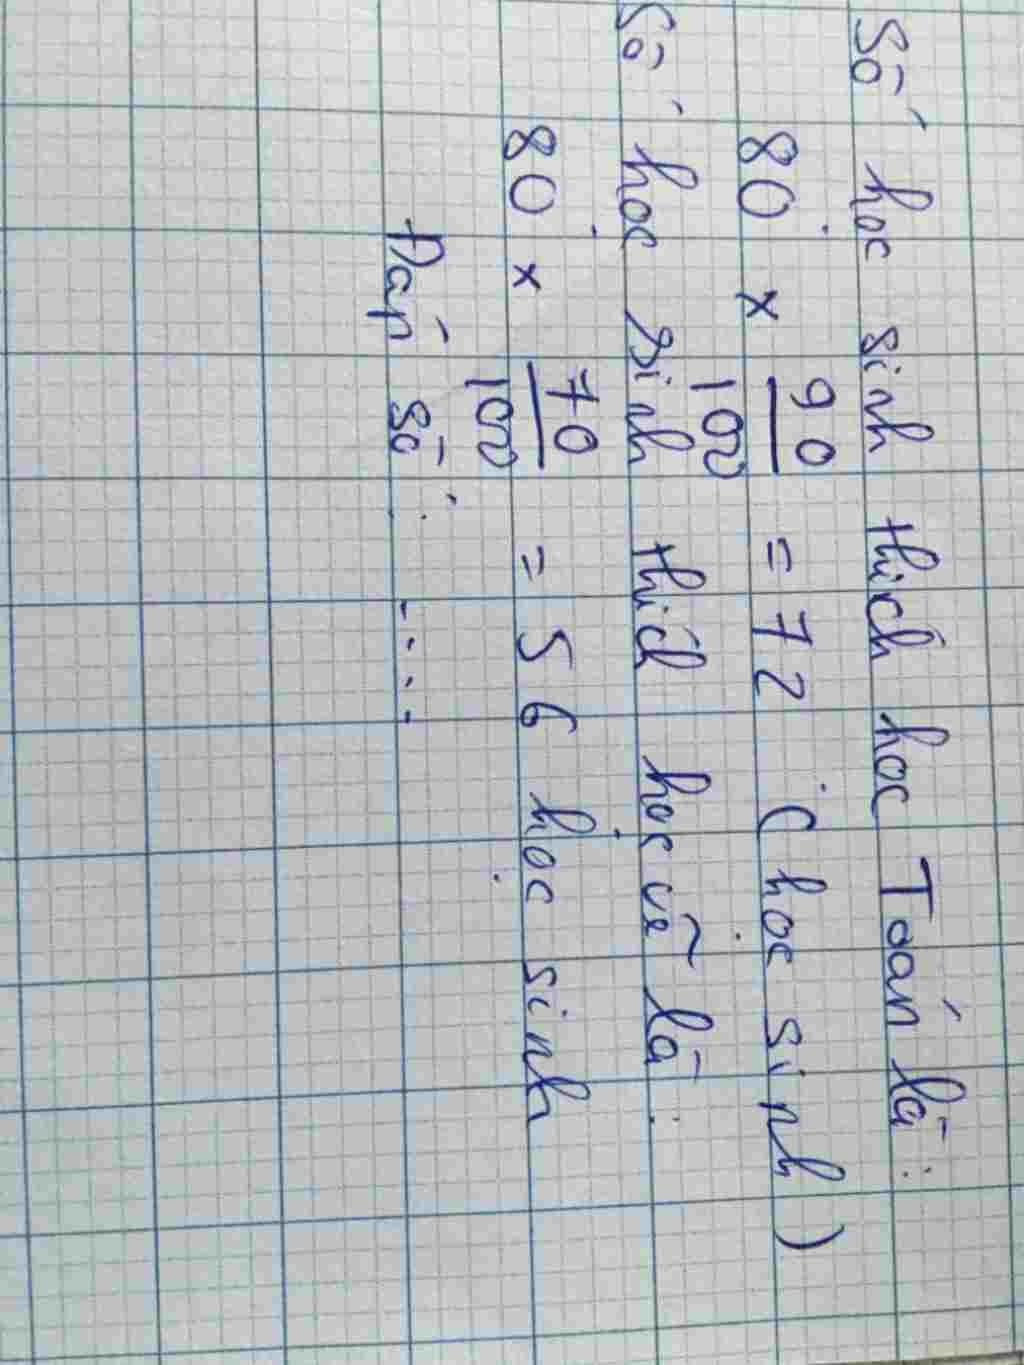 Số học sinh thích học Toán là:
80 x 90/100 = 72 (học sinh)
Số học sinh thích học vẽ là:
80 x 70/100 = 56 học sinh
Đáp số: ....